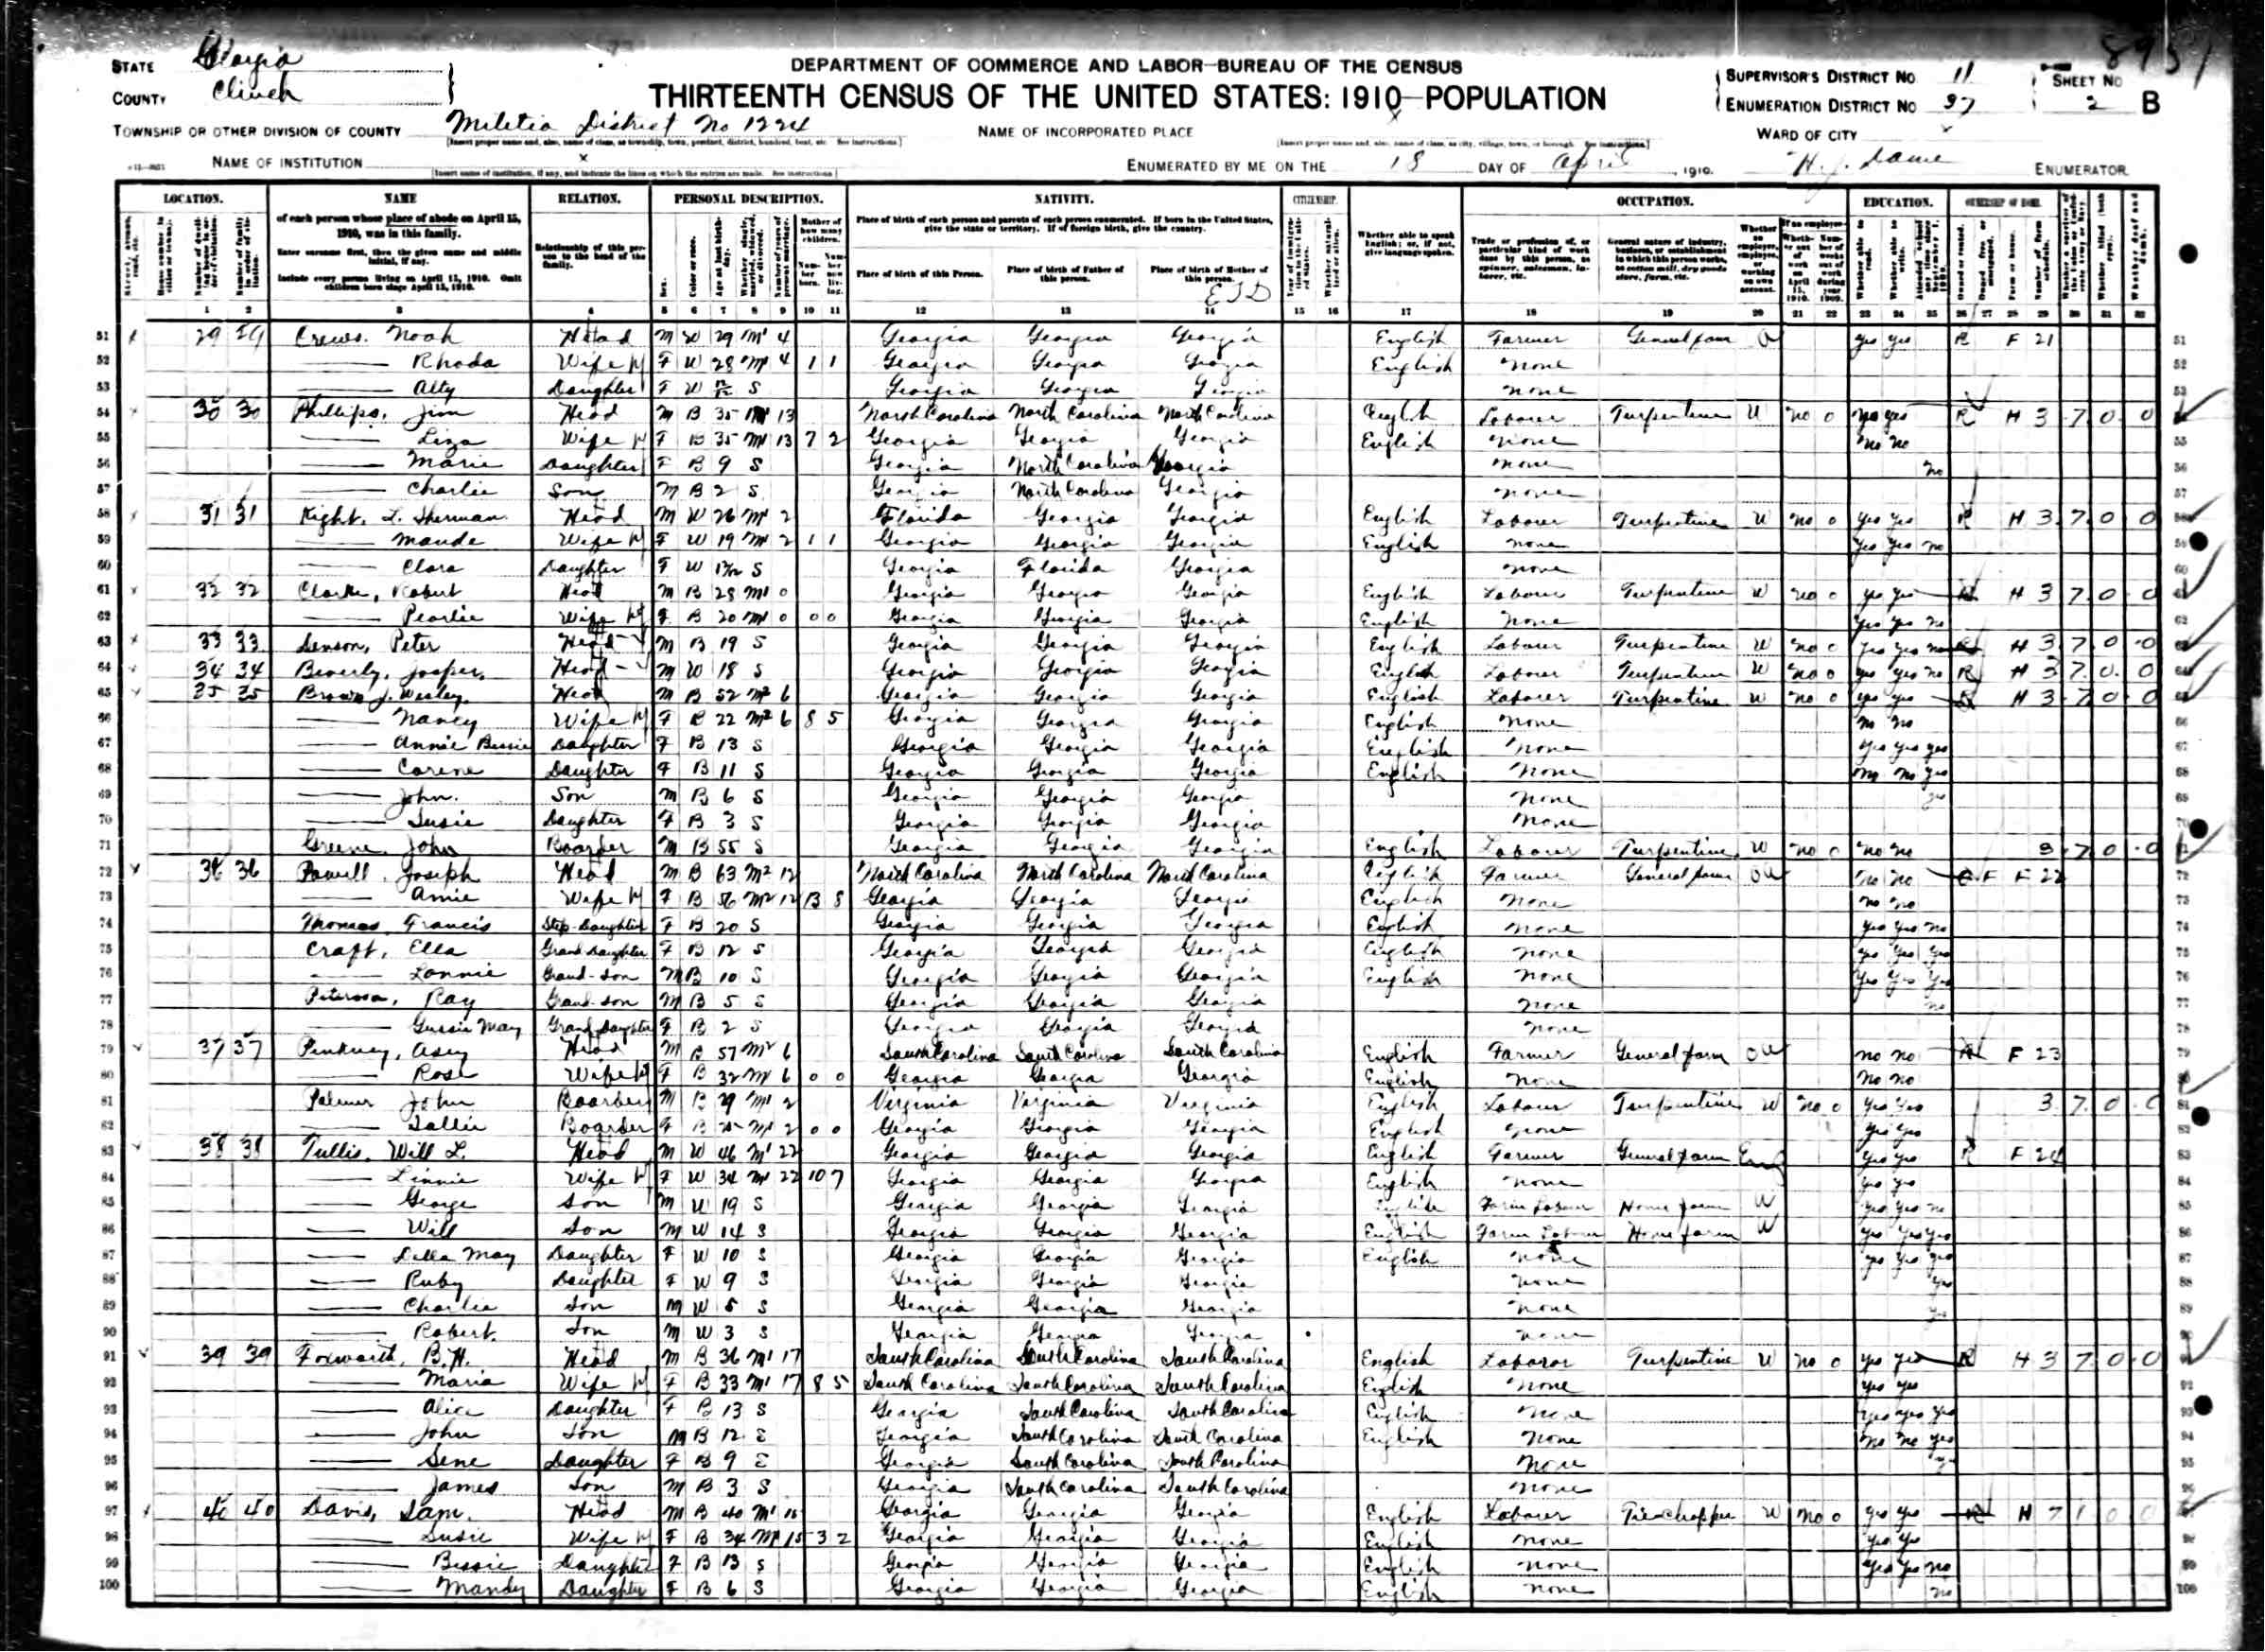 8951
STATE Georgia
COUNTY Clinch
DEPARTMENT OF COMMERCE AND LABOR—BUREAU OF THE CENSUS
THIRTEENTH CENSUS OF THE UNITED STATES: 1910—POPULATION
SUPERVISOR'S DISTRICT NO 11
ENUMERATION DISTRICT NO 97
SHEET NO 2 B
TOWNSHIP OR OTHER DIVISION OF COUNTY Militia District No 1224
NAME OF INCORPORATED PLACE X
WARD OF CITY X
NAME OF INSTITUTION X
ENUMERATED BY ME ON THE 18 DAY OF April, 1910. ENUMERATOR
LOCATION. NAME RELATION. PERSONAL DESCRIPTION. NATIVITY. CITIZENSHIP. OCCUPATION. EDUCATION. OWNERSHIP OF HOME.
of each person whose place of abode on April 15, 1910, was in this family.
Enter surname first, then the given name and middle initial, if any.
Include every person living on April 15, 1910. Omit children born since April 15, 1910.
Relationship of this person to the head of the family.
Place of birth of each person and parents of each person enumerated. If born in the United States, give the state or territory. If of foreign birth, give the country.
Place of birth of this Person. Place of birth of Father of this person. Place of birth of Mother of this person.
Whether able to speak English; or, if not, give language spoken.
1 2 3 4 5 6 7 8 9 10 11 12 13 14 15 16 17 18 19 20 21 22 23 24 25 26 27 28 29 30 31 32
51 29 29 Crews, Noah Head M W 29 M1 4 Georgia Georgia Georgia English Farmer General farm yes yes R F 21
52 Rhoda Wife F W 28 M1 4 1 1 Georgia Georgia Georgia English None
53 Alty Daughter F W S Georgia Georgia Georgia None
54 30 30 Phillips, Jim Head M B 35 M1 13 North Carolina North Carolina North Carolina English Laborer Turpentine W no 0 yes yes R H 3 7 0 0
55 Liza Wife F B 35 M1 13 7 2 Georgia Georgia Georgia English None no no
56 Marie Daughter F B 9 S Georgia North Carolina Georgia None no
57 Charlie Son M B 2 S Georgia North Carolina Georgia None
58 31 31 Kight, L. Sherman Head M W 26 M1 2 Florida Georgia Georgia English Laborer Turpentine W no 0 yes yes R H 3 7 0 0
59 Maude Wife F W 19 M1 2 1 1 Georgia Georgia Georgia English None yes yes no
60 Clara Daughter F W S Georgia Florida Georgia None
61 32 32 Clarke, Robert Head M B 28 M1 0 Georgia Georgia Georgia English Laborer Turpentine W no 0 yes yes R H 3 7 0 0
62 Pearlie Wife F B 20 M1 0 0 0 Georgia Georgia Georgia English None yes yes no
63 33 33 Denson, Peter Head M B 19 S Georgia Georgia Georgia English Laborer Turpentine W no 0 yes yes no R H 3 7 0 0
64 34 34 Beverly, Josper Head M W 18 S Georgia Georgia Georgia English Laborer Turpentine W no 0 yes yes no R H 3 7 0 0
65 35 35 Brown, J. Wesley Head M B 52 M2 6 Georgia Georgia Georgia English Laborer Turpentine W no 0 yes yes R H 3 7 0 0
66 Nancy Wife F B 22 M2 6 8 5 Georgia Georgia Georgia English None no no
67 Annie Bessie Daughter F B 13 S Georgia Georgia Georgia English None yes yes yes
68 Corene Daughter F B 11 S Georgia Georgia Georgia English None no no yes
69 John Son M B 6 S Georgia Georgia Georgia None
70 Susie Daughter F B 3 S Georgia Georgia Georgia None
71 Greene, John Boarder M B 55 S Georgia Georgia Georgia English Laborer Turpentine W no 0 no no 3 7 0 0
72 36 36 Powell, Joseph Head M B 63 M2 12 North Carolina North Carolina North Carolina English Farmer General farm OA no no O F F 22
73 Annie Wife F B 56 M2 12 13 8 Georgia Georgia Georgia English None no no
74 Thomas, Francis Step-Daughter F B 20 S Georgia Georgia Georgia English None yes yes no
75 Craft, Ella Grand Daughter F B 12 S Georgia Georgia Georgia English None yes yes yes
76 Lonnie Grand-son M B 10 S Georgia Georgia Georgia English None yes yes yes
77 Peterson, Ray Grand-son M B 5 S Georgia Georgia Georgia None no
78 Gussie May Grand Daughter F B 2 S Georgia Georgia Georgia None
79 37 37 Pinkney, Asey Head M B 57 M2 6 South Carolina South Carolina South Carolina English Farmer General farm OA no no R F 23
80 Rose Wife F B 32 M1 6 0 0 Georgia Georgia Georgia English None no no
81 Palmer John Boarder M B 29 M1 2 Virginia Virginia Virginia English Laborer Turpentine W no 0 yes yes 3 7 0 0
82 Sallie Boarder F B 25 M1 2 0 0 Georgia Georgia Georgia English None yes yes
83 38 38 Tullis, Will L. Head M W 46 M1 22 Georgia Georgia Georgia English Farmer General farm Emp yes yes R F 24
84 Linnie Wife F W 34 M1 22 10 7 Georgia Georgia Georgia English None yes yes
85 George Son M W 19 S Georgia Georgia Georgia English Farm Laborer Home farm W yes yes no
86 Will Son M W 14 S Georgia Georgia Georgia English Farm Laborer Home farm W yes yes yes
87 Della May Daughter F W 10 S Georgia Georgia Georgia English None yes yes yes
88 Ruby Daughter F W 9 S Georgia Georgia Georgia None yes
89 Charlie Son M W 5 S Georgia Georgia Georgia None
90 Robert Son M W 3 S Georgia Georgia Georgia None
91 39 39 Foxworth, B.H. Head M B 36 M1 17 South Carolina South Carolina South Carolina English Laborer Turpentine W no 0 yes yes R H 3 7 0 0
92 Maria Wife F B 33 M1 17 8 5 South Carolina South Carolina South Carolina English None yes yes
93 Alice Daughter F B 13 S Georgia South Carolina South Carolina English None yes yes yes
94 John Son M B 12 S Georgia South Carolina South Carolina English None no no yes
95 Sene Daughter F B 9 S Georgia South Carolina South Carolina None
96 James Son M B 3 S Georgia South Carolina South Carolina None
97 40 40 Davis, Sam Head M B 40 M1 15 Georgia Georgia Georgia English Laborer Tie Chopper W no 0 yes yes R H 7 1 0 0
98 Susie Wife F B 34 M1 15 3 2 Georgia Georgia Georgia English None yes yes
99 Bessie Daughter F B 13 S Georgia Georgia Georgia English None yes yes no
100 Mandy Daughter F B 6 S Georgia Georgia Georgia English None no